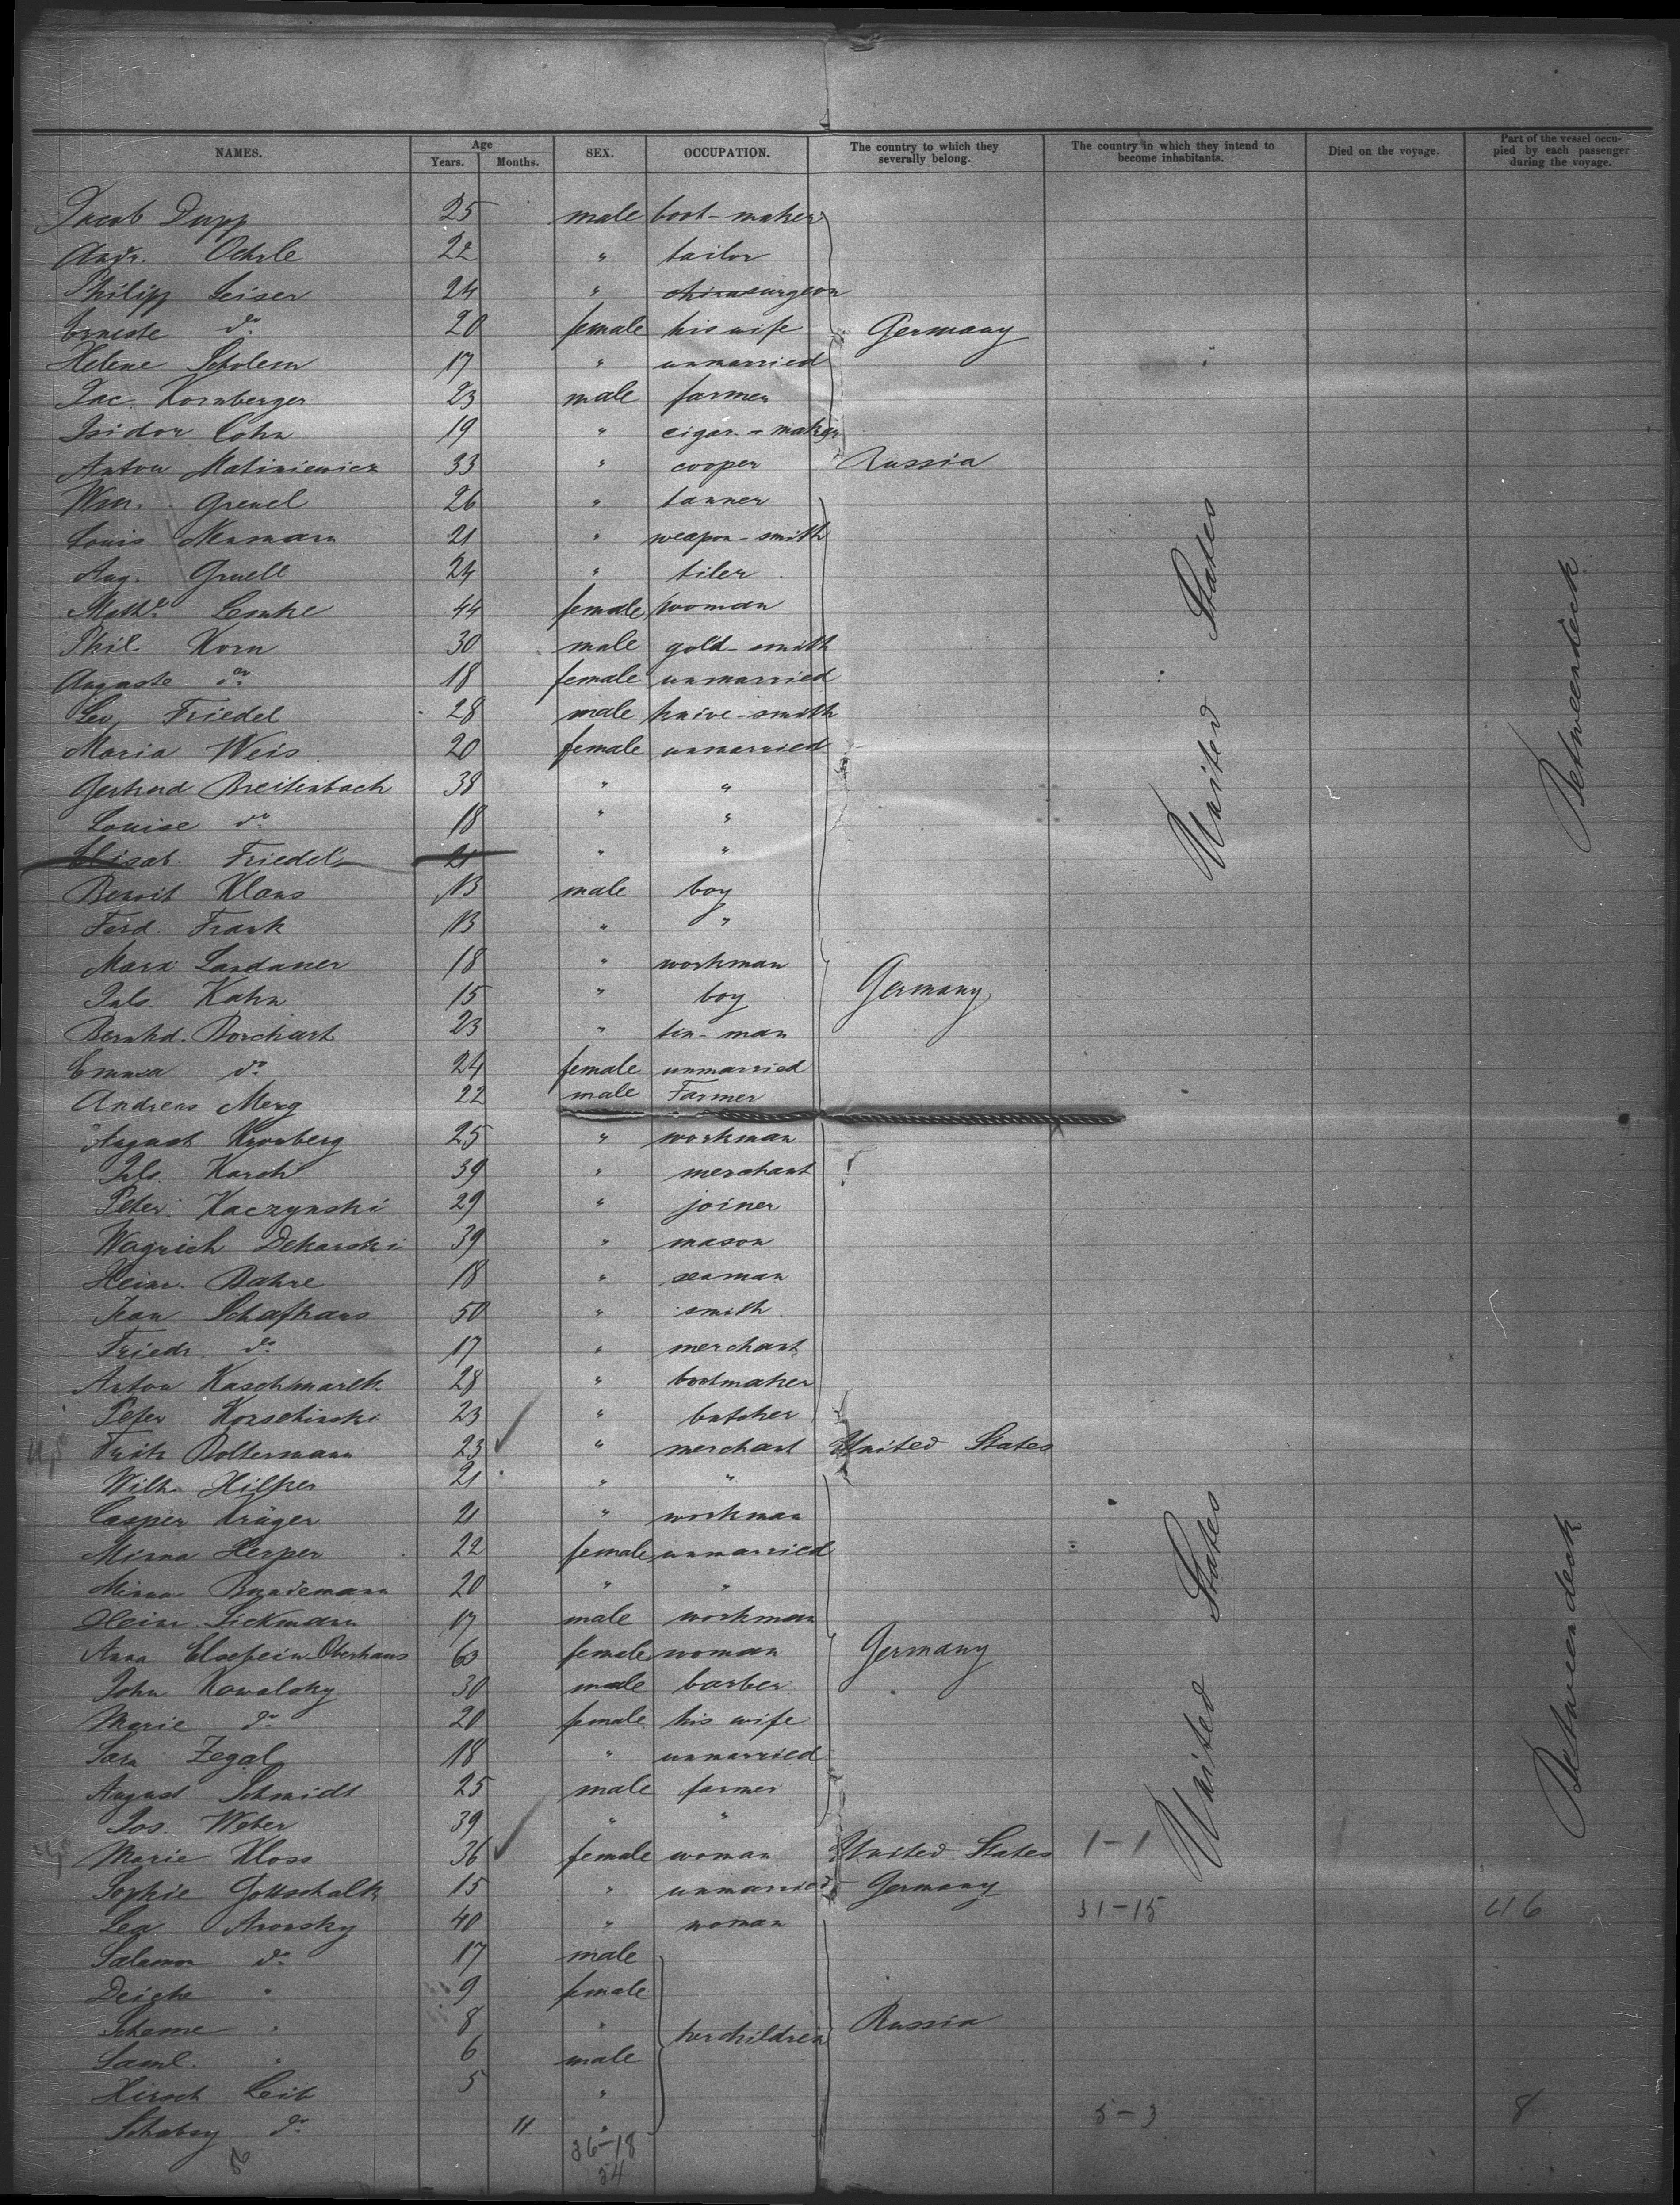 NAMES. Age Years. Months. SEX. OCCUPATION. The country to which they severally belong. The country in which they intend to become inhabitants. Died on the voyage. Part of the vessel occupied by each passenger during the voyage.
Jacob Dupp 25 male boot-maker
Andr. Oehrle 22 " tailor
Philipp Leiser 24 " surgeon
Erneste do 20 female his wife Germany
Helene Scholem 17 " unmarried
Jac. Kornberger 23 male farmer
Isidor Cohn 19 " cigar-maker
Anton Matiniewicz 33 " cooper Russia
Wm. Greuel 26 " tanner
Louis Neumann 21 " weapon-smith
Aug. Gruell 24 " tiler
Mathe Lemke 44 female woman
Phil. Korn 30 male gold-smith
Auguste do 18 female unmarried
Lev. Friedel 28 male knive-smith
Maria Weis 20 female unmarried
Gertrud Breitenbach 38 " "
Louise do 18 " "
Elisab. Friedel 21 " "
Benoit Klaus 13 male boy
Ferd. Frank 13 " "
Marx Landauer 18 " workman
Juls. Kahn 15 " boy Germany
Bernhd. Borchart 23 " tin-man
Emma do 24 female unmarried
Andreas Merg 22 male Farmer
August Kronberg 25 " workman
Juls. Karch 39 " merchant
Peter Kaczynski 29 " joiner
Wogrich Dekarski 39 " mason
Heinr. Bahre 18 " seaman
Jean Schafhaus 50 " smith
Friedr. do 17 " merchant
Anton Kaschmarek 28 " bootmaker
Peter Korschinski 23 " butcher
Fritz Boltermann 23 " merchant United States
Wilh. Hilper 21 " "
Casper Krüger 21 " workman
Minna Herper 22 female unmarried
Minna Bundemann 20 " "
Heinr. Sickmann 17 male workman
Anna Elsefein Oberhaus 63 female woman Germany
John Kowalsky 30 male barber
Marie do 20 female his wife
Sara Zegal 18 " unmarried
August Schmidt 25 male farmer
Jos. Weber 39 " "
Marie Kloss 36 female woman United States 1-1
Sophie Gottschalk 15 " unmarried Germany
31-15 46
Lea Aronsky 40 " woman
Salamon do 17 male
Deiche " 9 female
Scheme " 8 " her children Russia
Saml. " 6 male
Hirsch Leib 5 "
5-3 8
Schabsy do 11 "
36-18
54
United States
Betweendeck
United States
Betweendeck